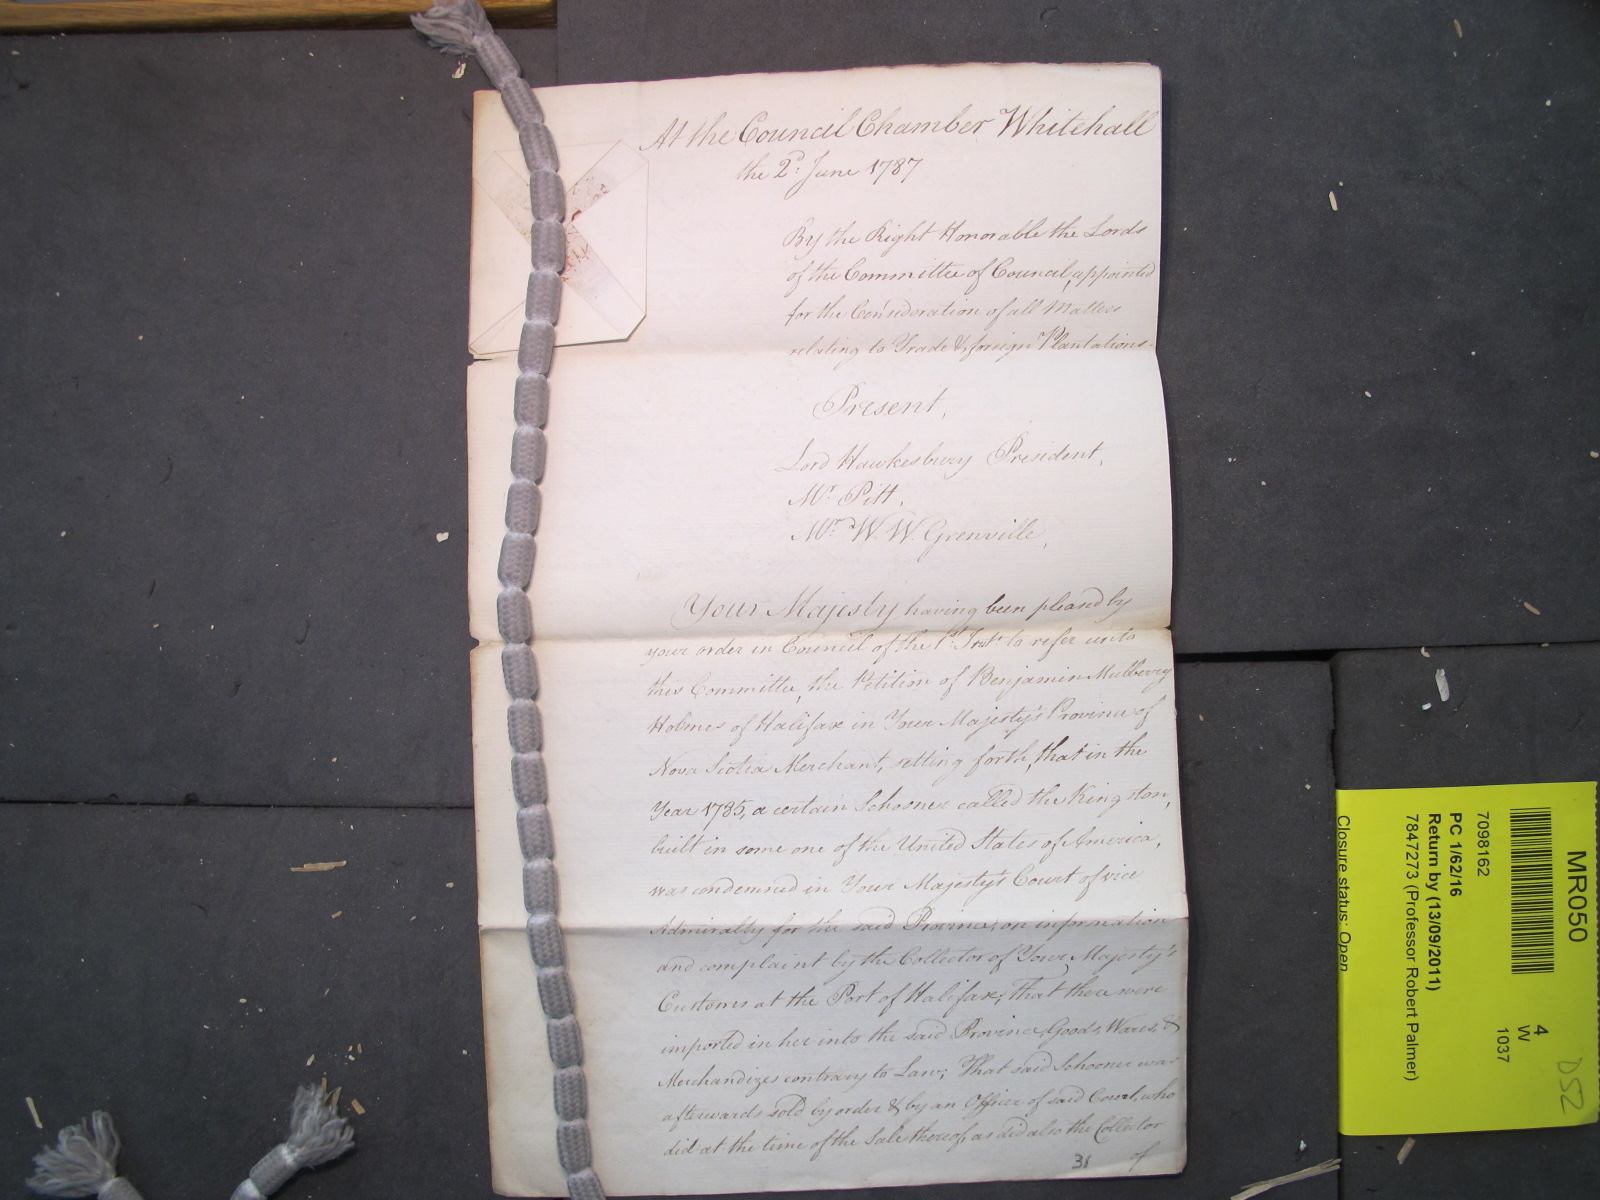 At the Council Chamber Whitehall
the 2d. June 1787
By the Right Honorable the Lords
of the Committee of Council, appointed
for the Consideration of all Matters
relating to Trade & foreign Plantations
Present,
Lord Hawkesbury President,
Mr. Pitt,
Mr. W. W. Grenville,
Your Majesty having been pleased by
your order in Council of the 1st. Inst. to refer unto
this Committee, the Petition of Benjamin Mulberry
Holmes of Halifax in Your Majesty's Province of
Nova Scotia Merchant, setting forth, that in the
Year 1785, a certain Schooner called the Kingston,
built in some one of the United States of America,
was condemned in Your Majesty's Court of vice
Admiralty for the said Province, on information
and complaint by the Collector of Your Majesty's
Customs at the Port of Halifax; That there were
imported in her into the said Province, Goods, Wares, &
Merchandizes contrary to Law; That said Schooner was
afterwards sold by order & by an Officer of said Court, who
did at the time of the Sale thereof, as did also the Collector
of
31
MR050
4
W
1037
7098162
PC 1/62/16
Return by (13/09/2011)
7847273 (Professor Robert Palmer)
Closure status: Open
D52